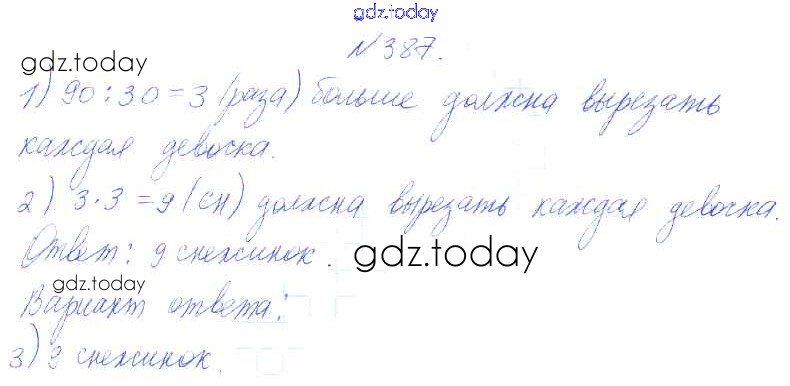 gdz.today
№387.
gdz.today
1) 90:30=3 (раза) больше должна вырезать
каждая девочка.
2) 3·3=9 (сн) должна вырезать каждая девочка.
Ответ: 9 снежинок.
gdz.today
gdz.today
Вариант ответа:
3) 9 снежинок.